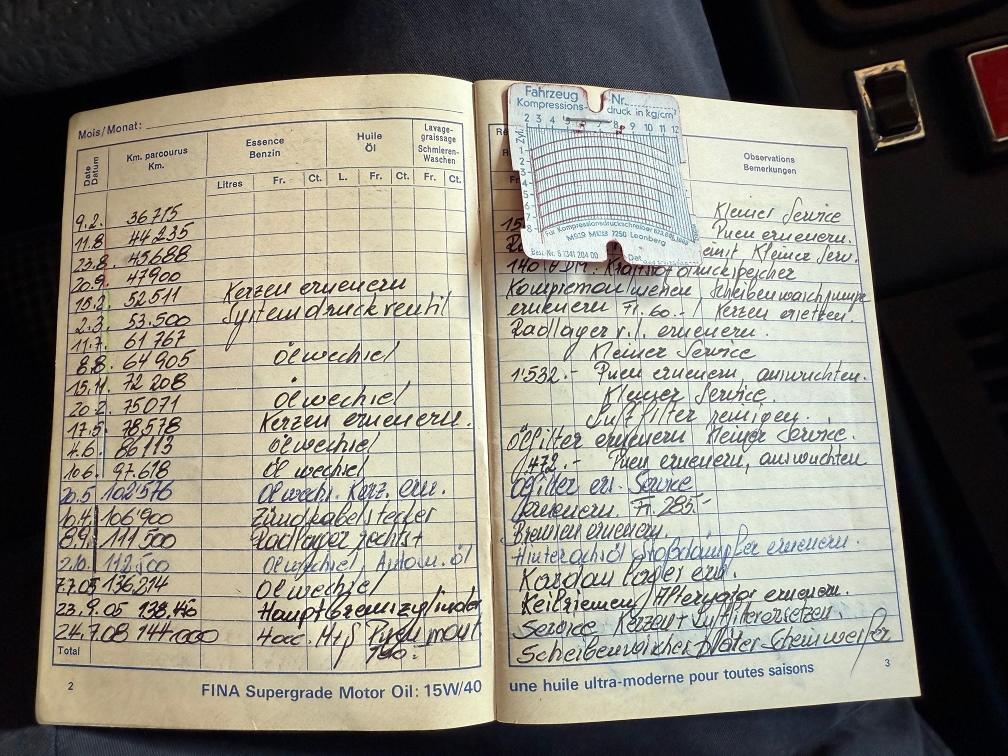 Mois/Monat:
Date
Datum
Km. parcourus
Km.
Essence
Benzin
Huile
Öl
Lavage-
graissage
Schmieren-
Waschen
Litres Fr. Ct. L. Fr. Ct. Fr. Ct.
9.2. 36715
11.8 44235
23.8 45688
20.9 47900
52.511 Kerzen erneuern
2.3. 53.500 Systemdruckventil
11.7. 61 767
8.8. 64 905 Ölwechsel
15.11. 72 208
20.2. 75071 Ölwechsel
17.5. 78,578 Kerzen erneuern.
4.6. 86113 Ölwechsel
10.6. 97.618 Ölwechsel
20.5 102'576 Ölwechs. Kerz. ern.
10.4 106'900 Zündkabelstecker
8.9. 111.500 Radlager rechts
2.10. 112.500 Ölwechsel, Autom. öl
7.7.05 136.214 Ölwechsel
23.9.05 Hauptbremszylinder
24.7.08
Total
2
FINA Supergrade Motor Oil: 15W/40
Fahrzeug Nr.
Kompressions- druck in kg/cm²
2 3 4 5 6 7 8 9 10 11 12
Zyl.
1
2
3
4
5
6
7
8
Für Kompressionsdruckschreiber
7250 Leonberg
Dat.
Observations
Bemerkungen
Kleiner Service
Pneu erneuern.
Kleiner Serv.
Scheibenwaschpumpe
erneuern Fr. 60.- Kerzen ersetzen.
Radlager v.l. erneuern.
Kleiner Service
1'532.- Pneu erneuern, auswuchten.
Kleiner Service.
Luftfilter reinigen.
Ölfilter erneuern Kleiner Service.
472.- Pneu erneuern, auswuchten
Ölfilter ers. Service
erneuern. Fr. 285.-
Bremsen erneuern.
Hinterachsöl Stoßdämpfer erneuern.
Kardanlager ern.
Keilriemen/Alternator erneuern.
Service Kerzen + Luftfilter ersetzen.
Scheibenwischer blätter Scheinwerfer
3
une huile ultra-moderne pour toutes saisons